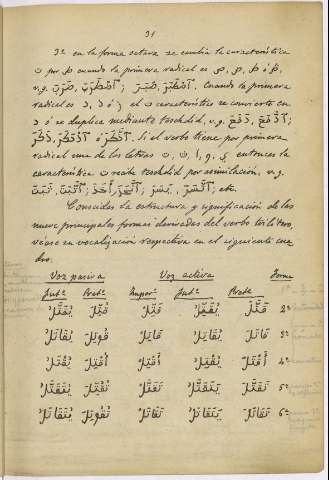 31
3º en la forma octava se cambia la característica
ت por ط cuando la primera radical es ص, ض, ط ó ظ,
v.g. إضطرب, ضرب; إصطبر, صبر. Cuando la primera
radical es د, ذ ó ز el ت característico se convierte en
د ó se duplica mediante texchdid, v.g. دمع, إدّمع;
ذكر, إذّكر ó إذدكر. Si el verbo tiene por primera
radical una de las letras ت, ث, ا, و, ي entonces la
característica ت recibe texchdid por asimilación, v.g.
ثبت, إتّبت; أخذ, إتّخذ; يسر, إتّسر; etc.
Conocidas la estructura y significación de las
nueve principales formas derivadas del verbo trilítero,
vease su vocalización respectiva en el siguiente cua-
dro:
Voz pasiva Voz activa Forma
Futº Pretº Imperº Futº Pretº
يُقَتَّلُ قُتِّلَ قَتِّلْ يُقَتِّلُ قَتَّلَ 2ª
يُقَاتَلُ قُوتِلَ قَاتِلْ يُقَاتِلُ قَاتَلَ 3ª
يُقْتَلُ أُقْتِلَ أَقْتِلْ يُقْتِلُ أَقْتَلَ 4ª
يُتَقَتَّلُ تُقُتِّلَ تَقَتَّلْ يَتَقَتَّلُ تَقَتَّلَ 5ª
يُتَقَاتَلُ تُقُوتِلَ تَقَاتَلْ يَتَقَاتَلُ تَقَاتَلَ 6ª